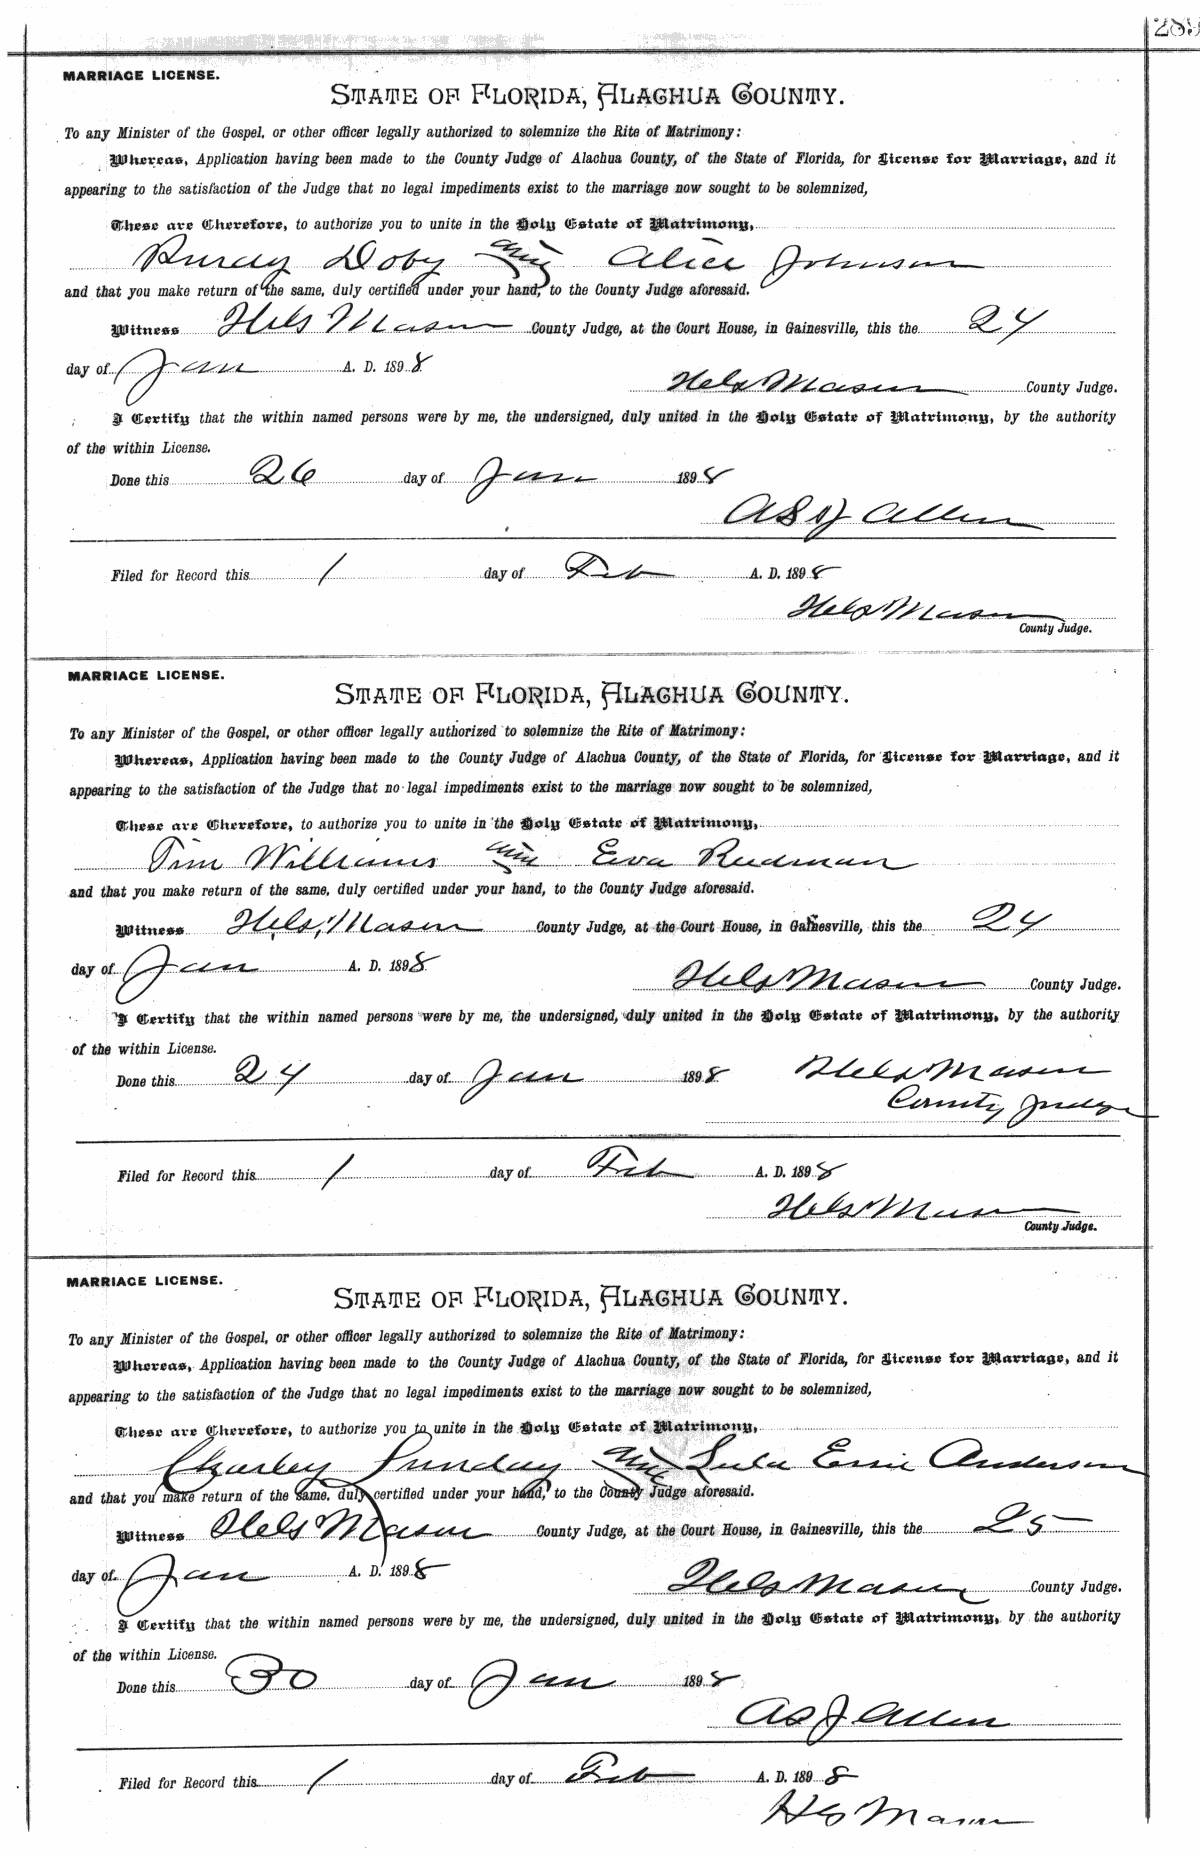 289
MARRIAGE LICENSE.
STATE OF FLORIDA, ALACHUA COUNTY.
To any Minister of the Gospel, or other officer legally authorized to solemnize the Rite of Matrimony:
Whereas, Application having been made to the County Judge of Alachua County, of the State of Florida, for License for Marriage, and it
appearing to the satisfaction of the Judge that no legal impediments exist to the marriage now sought to be solemnized,
These are Therefore, to authorize you to unite in the Holy Estate of Matrimony,
Doby and Alice Johnson
and that you make return of the same, duly certified under your hand, to the County Judge aforesaid.
Witness Mason County Judge, at the Court House, in Gainesville, this the 24
day of Jan A. D. 1898
Mason County Judge.
I Certify that the within named persons were by me, the undersigned, duly united in the Holy Estate of Matrimony, by the authority
of the within License.
Done this 26 day of Jan 1898
Allen
Filed for Record this 1 day of Feb A. D. 1898
Mason
County Judge.
MARRIAGE LICENSE.
STATE OF FLORIDA, ALACHUA COUNTY.
To any Minister of the Gospel, or other officer legally authorized to solemnize the Rite of Matrimony:
Whereas, Application having been made to the County Judge of Alachua County, of the State of Florida, for License for Marriage, and it
appearing to the satisfaction of the Judge that no legal impediments exist to the marriage now sought to be solemnized,
These are Therefore, to authorize you to unite in the Holy Estate of Matrimony,
Tim Williams and Eva Redman
and that you make return of the same, duly certified under your hand, to the County Judge aforesaid.
Witness Mason County Judge, at the Court House, in Gainesville, this the 24
day of Jan A. D. 1898
Mason County Judge.
I Certify that the within named persons were by me, the undersigned, duly united in the Holy Estate of Matrimony, by the authority
of the within License.
Done this 24 day of Jan 1898 Mason
County Judge
Filed for Record this 1 day of Feb A. D. 1898
Mason
County Judge.
MARRIAGE LICENSE.
STATE OF FLORIDA, ALACHUA COUNTY.
To any Minister of the Gospel, or other officer legally authorized to solemnize the Rite of Matrimony:
Whereas, Application having been made to the County Judge of Alachua County, of the State of Florida, for License for Marriage, and it
appearing to the satisfaction of the Judge that no legal impediments exist to the marriage now sought to be solemnized,
These are Therefore, to authorize you to unite in the Holy Estate of Matrimony,
Charley Sunday and Lula Anderson
and that you make return of the same, duly certified under your hand, to the County Judge aforesaid.
Witness Mason County Judge, at the Court House, in Gainesville, this the 25
day of Jan A. D. 1898
Mason County Judge.
I Certify that the within named persons were by me, the undersigned, duly united in the Holy Estate of Matrimony, by the authority
of the within License.
Done this 30 day of Jan 1898
Allen
Filed for Record this 1 day of Feb A. D. 1898
Mason